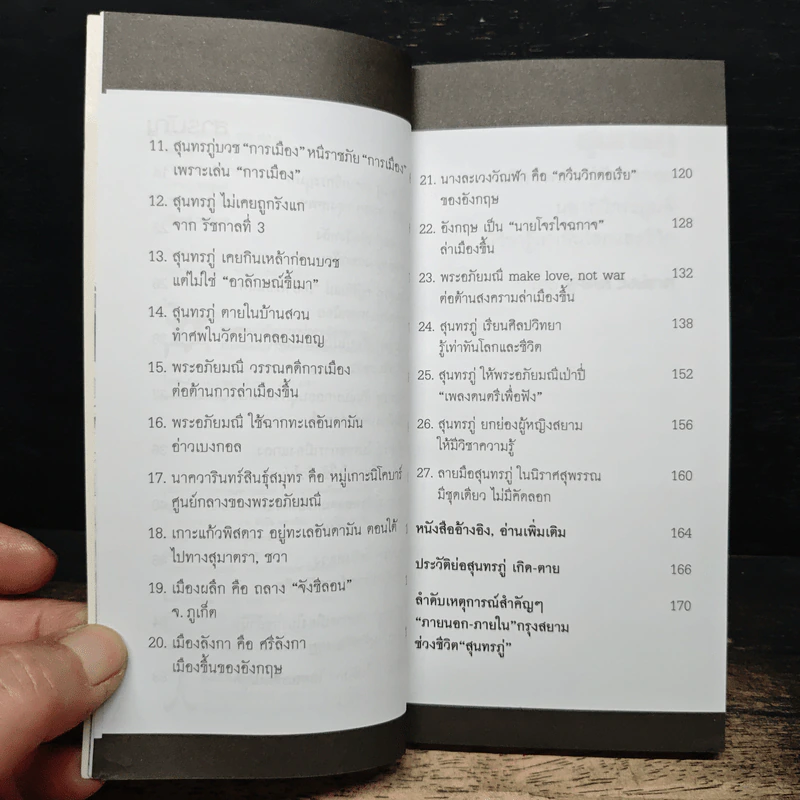 11. สุนทรภู่บวช “การเมือง” หนีราชภัย “การเมือง”
เพราะเล่น “การเมือง”
12. สุนทรภู่ ไม่เคยถูกรังแก
จาก รัชกาลที่ 3
13. สุนทรภู่ เคยกินเหล้าก่อนบวช
แต่ไม่ใช่ “อาลักษณ์ขี้เมา”
14. สุนทรภู่ ตายในบ้านสวน
ทำศพในวัดย่านคลองมอญ
15. พระอภัยมณี วรรณคดีการเมือง
ต่อต้านการล่าเมืองขึ้น
16. พระอภัยมณี ใช้ฉากทะเลอันดามัน
อ่าวเบงกอล
17. นาควารินทร์สินธุ์สมุทร คือ หมู่เกาะนิโคบาร์
ศูนย์กลางของพระอภัยมณี
18. เกาะแก้วพิสดาร อยู่ทะเลอันดามัน ตอนใต้
ไปทางสุมาตรา, ชวา
19. เมืองผลึก คือ ถลาง “จังซีลอน”
จ.ภูเก็ต
20. เมืองลังกา คือ ศรีลังกา
เมืองขึ้นของอังกฤษ
21. นางละเวงวัณฬา คือ “ควีนวิกตอเรีย” 120
ของอังกฤษ
22. อังกฤษ เป็น “นายโจรใจฉกาจ” 128
ล่าเมืองขึ้น
23. พระอภัยมณี make love, not war 132
ต่อต้านสงครามล่าเมืองขึ้น
24. สุนทรภู่ เรียนศิลปวิทยา 138
รู้เท่าทันโลกและชีวิต
25. สุนทรภู่ ให้พระอภัยมณีเป่าปี่ 152
“เพลงดนตรีเพื่อฟัง”
26. สุนทรภู่ ยกย่องผู้หญิงสยาม 156
ให้มีวิชาความรู้
27. ลายมือสุนทรภู่ ในนิราศสุพรรณ 160
มีชุดเดียว ไม่มีคัดลอก
หนังสืออ้างอิง, อ่านเพิ่มเติม 164
ประวัติย่อสุนทรภู่ เกิด-ตาย 166
ลำดับเหตุการณ์สำคัญๆ 170
“ภายนอก-ภายใน”กรุงสยาม
ช่วงชีวิต“สุนทรภู่”